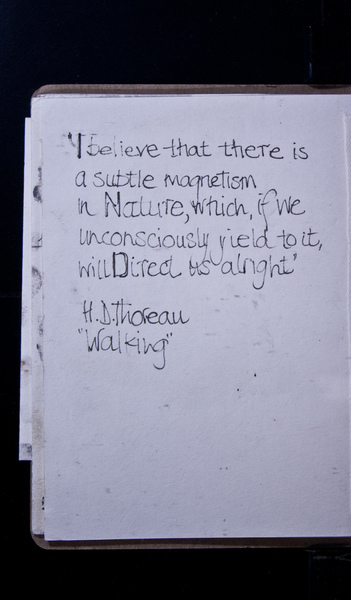 'I believe that there is
a subtle magnetism
in Nature, which, if we
unconsciously yield to it,
will Direct us alright'
H.D.Thoreau
"Walking"